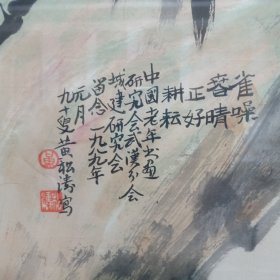 雀噪
喜晴
正好
耕耘
中國老年书画
研究会武漢分会
城建研究会
留念一九九年
元月
九十叟黄松涛写